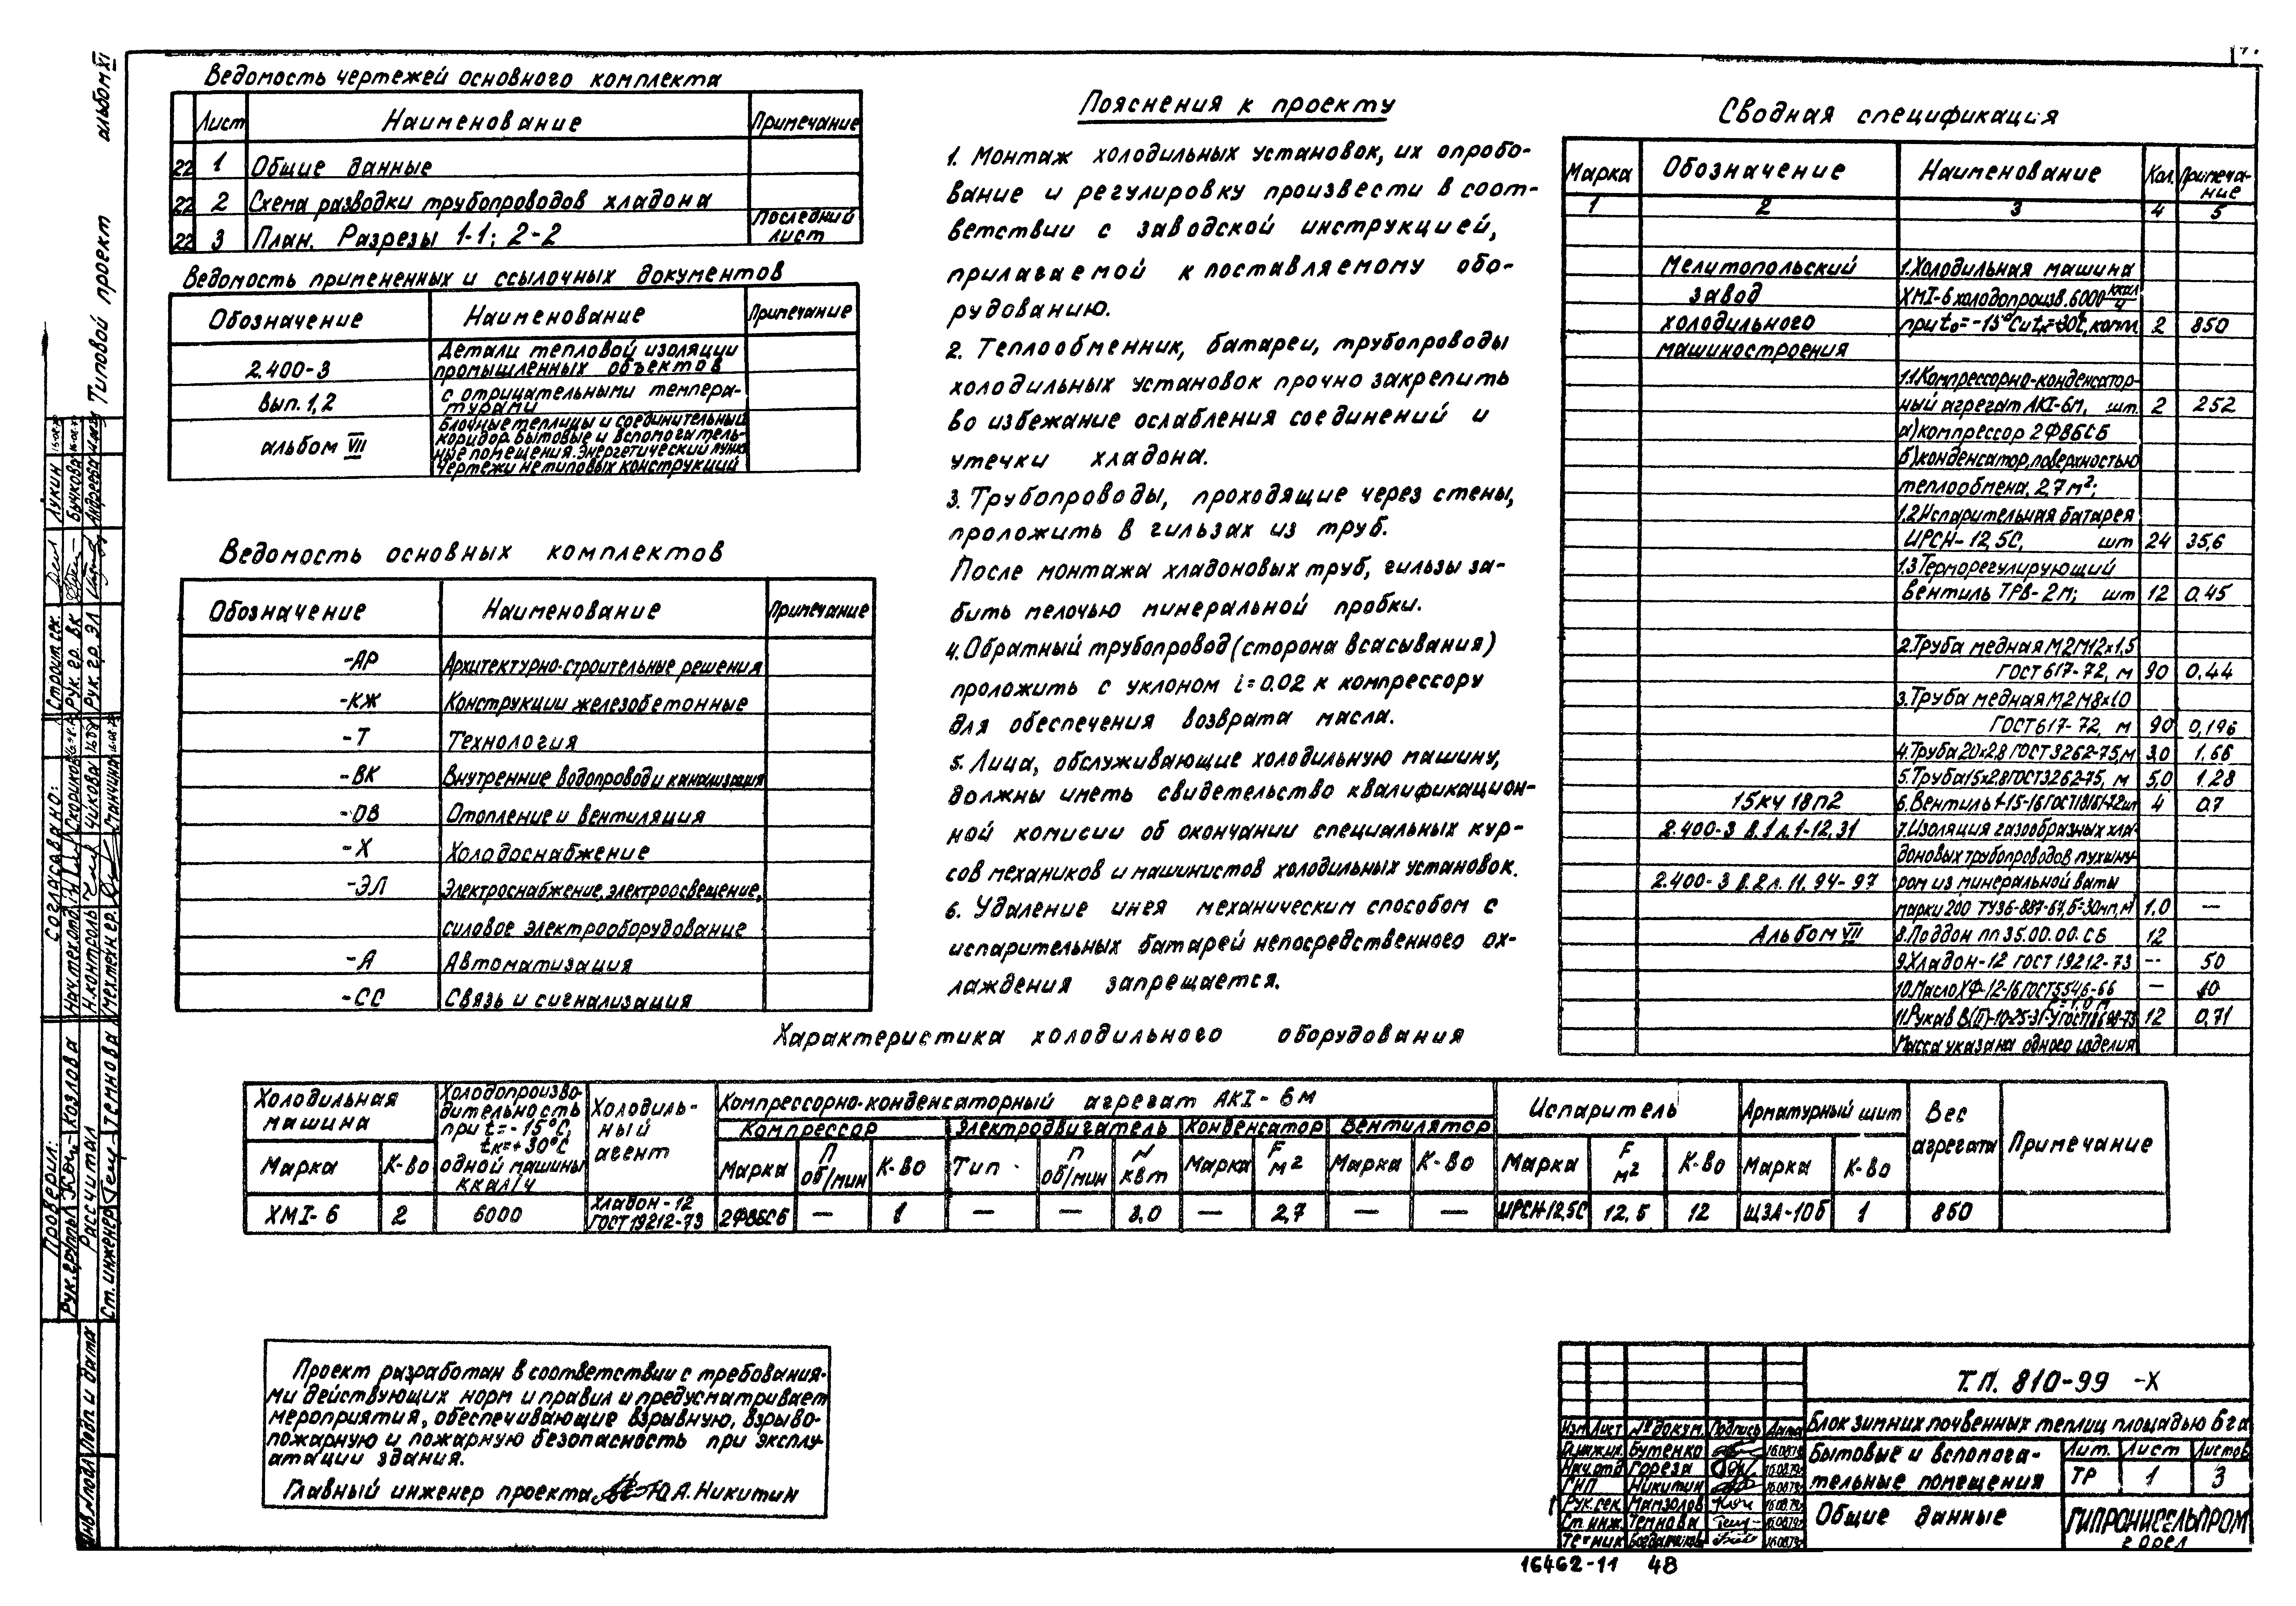 Типовой проект альбом XI
Ведомость чертежей основного комплекта
Лист Наименование Примечание
22 1 Общие данные
22 2 Схема разводки трубопроводов хладона
22 3 План. Разрезы 1-1; 2-2 Последний лист
Ведомость примененных и ссылочных документов
Обозначение Наименование Примечание
2.400-3 Детали тепловой изоляции
промышленных объектов
вып. 1,2 с отрицательными темпера-
турами
альбом VII Блочные теплицы и соединительный
коридор. Бытовые и вспомогатель-
ные помещения. Энергетический пункт
Чертежи нетиповых конструкций
Ведомость основных комплектов
Обозначение Наименование Примечание
-АР Архитектурно-строительные решения
-КЖ Конструкции железобетонные
-Т Технология
-ВК Внутренние водопровод и канализация
-ОВ Отопление и вентиляция
-Х Холодоснабжение
-ЭЛ Электроснабжение, электроосвещение,
силовое электрооборудование
-А Автоматизация
-СС Связь и сигнализация
Пояснения к проекту
1. Монтаж холодильных установок, их опробо-
вание и регулировку произвести в соот-
ветствии с заводской инструкцией,
прилагаемой к поставляемому обо-
рудованию.
2. Теплообменник, батареи, трубопроводы
холодильных установок прочно закрепить
во избежание ослабления соединений и
утечки хладона.
3. Трубопроводы, проходящие через стены,
проложить в гильзах из труб.
После монтажа хладоновых труб, гильзы за-
бить мелочью минеральной пробки.
4. Обратный трубопровод (сторона всасывания)
проложить с уклоном i=0.02 к компрессору
для обеспечения возврата масла.
5. Лица, обслуживающие холодильную машину,
должны иметь свидетельство квалификацион-
ной комисии об окончании специальных кур-
сов механиков и машинистов холодильных установок.
6. Удаление инея механическим способом с
испарительных батарей непосредственного ох-
лаждения запрещается.
Сводная спецификация
Марка Обозначение Наименование Кол. Примеча-
ние
1 2 3 4 5
Мелитопольский 1. Холодильная машина
завод ХМ1-6 холодопроизв. 6000 ккал/ч
холодильного при t₀=-15°С и tк=+30°С, компл 2 850
машиностроения
1.1 Компрессорно-конденсатор-
ный агрегат АК1-6М, шт. 2 252
а) компрессор 2ФВБС6
б) конденсатор, поверхностью
теплообмена, 2,7м²;
1.2 Испарительная батарея
ИРСН-12,5С, шт 24 35,6
1.3 Терморегулирующий
вентиль ТРВ-2М; шт 12 0.45
2. Труба медная М2М12х1,5
ГОСТ 617-72, м 90 0.44
3. Труба медная М2М8х1.0
ГОСТ 617-72, м 90 0,196
4. Труба 20х2.8 ГОСТ 3262-75, м 3.0 1.66
5. Труба 15х2.8 ГОСТ 3262-75, м 5,0 1.28
15кч 18п2 6. Вентиль 1-15-16 ГОСТ 18161-72 шт 4 0.7
2.400-3 В.1 л.1-12,31 7. Изоляция газообразных хла-
доновых трубопроводов пухшну-
2.400-3 В.2 л. 11. 94-97 ром из минеральной ваты
марки 200 ТУ36-887-67, б=30мм, м³ 1.0 —
Альбом VII 8. Поддон ПП 35.00.00.СБ 12
9. Хладон-12 ГОСТ 19212-73 -- 50
10. Масло ХФ-12-16 ГОСТ 5546-66 — 10
ℓ=1,0 м
11. Рукав В(II)-10-25-31-У ГОСТ 18698-73 12 0,71
Масса указана одного изделия
Характеристика холодильного оборудования
Холодильная машина Холодопроизво-
дительность
при t=-15°С,
tк=+30°С
одной машины
ккал/ч Холодиль-
ный
агент Компрессорно-конденсаторный агрегат АК1-6М Испаритель Арматурный щит Вес
агрегата Примечание
Компрессор Электродвигатель Конденсатор Вентилятор
Марка К-во Марка П об/мин К-во Тип п об/мин N квт Марка F м² Марка К-во Марка F м² К-во Марка К-во
ХМ1-6 2 6000 Хладон-12
ГОСТ 19212-73 2ФВБС6 — 1 — — 3.0 — 2,7 — — ИРСН-12,5С 12,5 12 ЩЗА-10б 1 850
Проект разработан в соответствии с требования-
ми действующих норм и правил и предусматривает
мероприятия, обеспечивающие взрывную, взрыво-
пожарную и пожарную безопасность при эксплу-
атации здания.
Главный инженер проекта Ю.А. Никитин
Согласовано:
Нач. тех. отд. Скориков
Н. контроль Чикова
Мех. техн. ер. Стончина
Строит. сек. Лукин
Рук. гр. ВК Бычкова
Рук. гр. ЭЛ Андреева
Проверил:
Рук. группы Козлова
Рассчитал
Ст. инженер Темнова
Инв. № подл. Подп. и дата
Т.П. 810-99 -Х
Блок зимних почвенных теплиц площадью 6 га
Изм Лист № докум. Подпись Дата
Гл. инж. ин. Бутенко 16.08.79
Нач. отд Гореза 16.08.79
ГИП Никитин 16.08.79
Рук. сек. Мамзолов 16.08.79
Ст. инж. Темнова 16.08.79
Техник 16.08.79
Бытовые и вспомога-
тельные помещения
Лит. Лист Листов
ТР 1 3
Общие данные
ГИПРОНИСЕЛЬПРОМ
г. Орел
16462-11 48